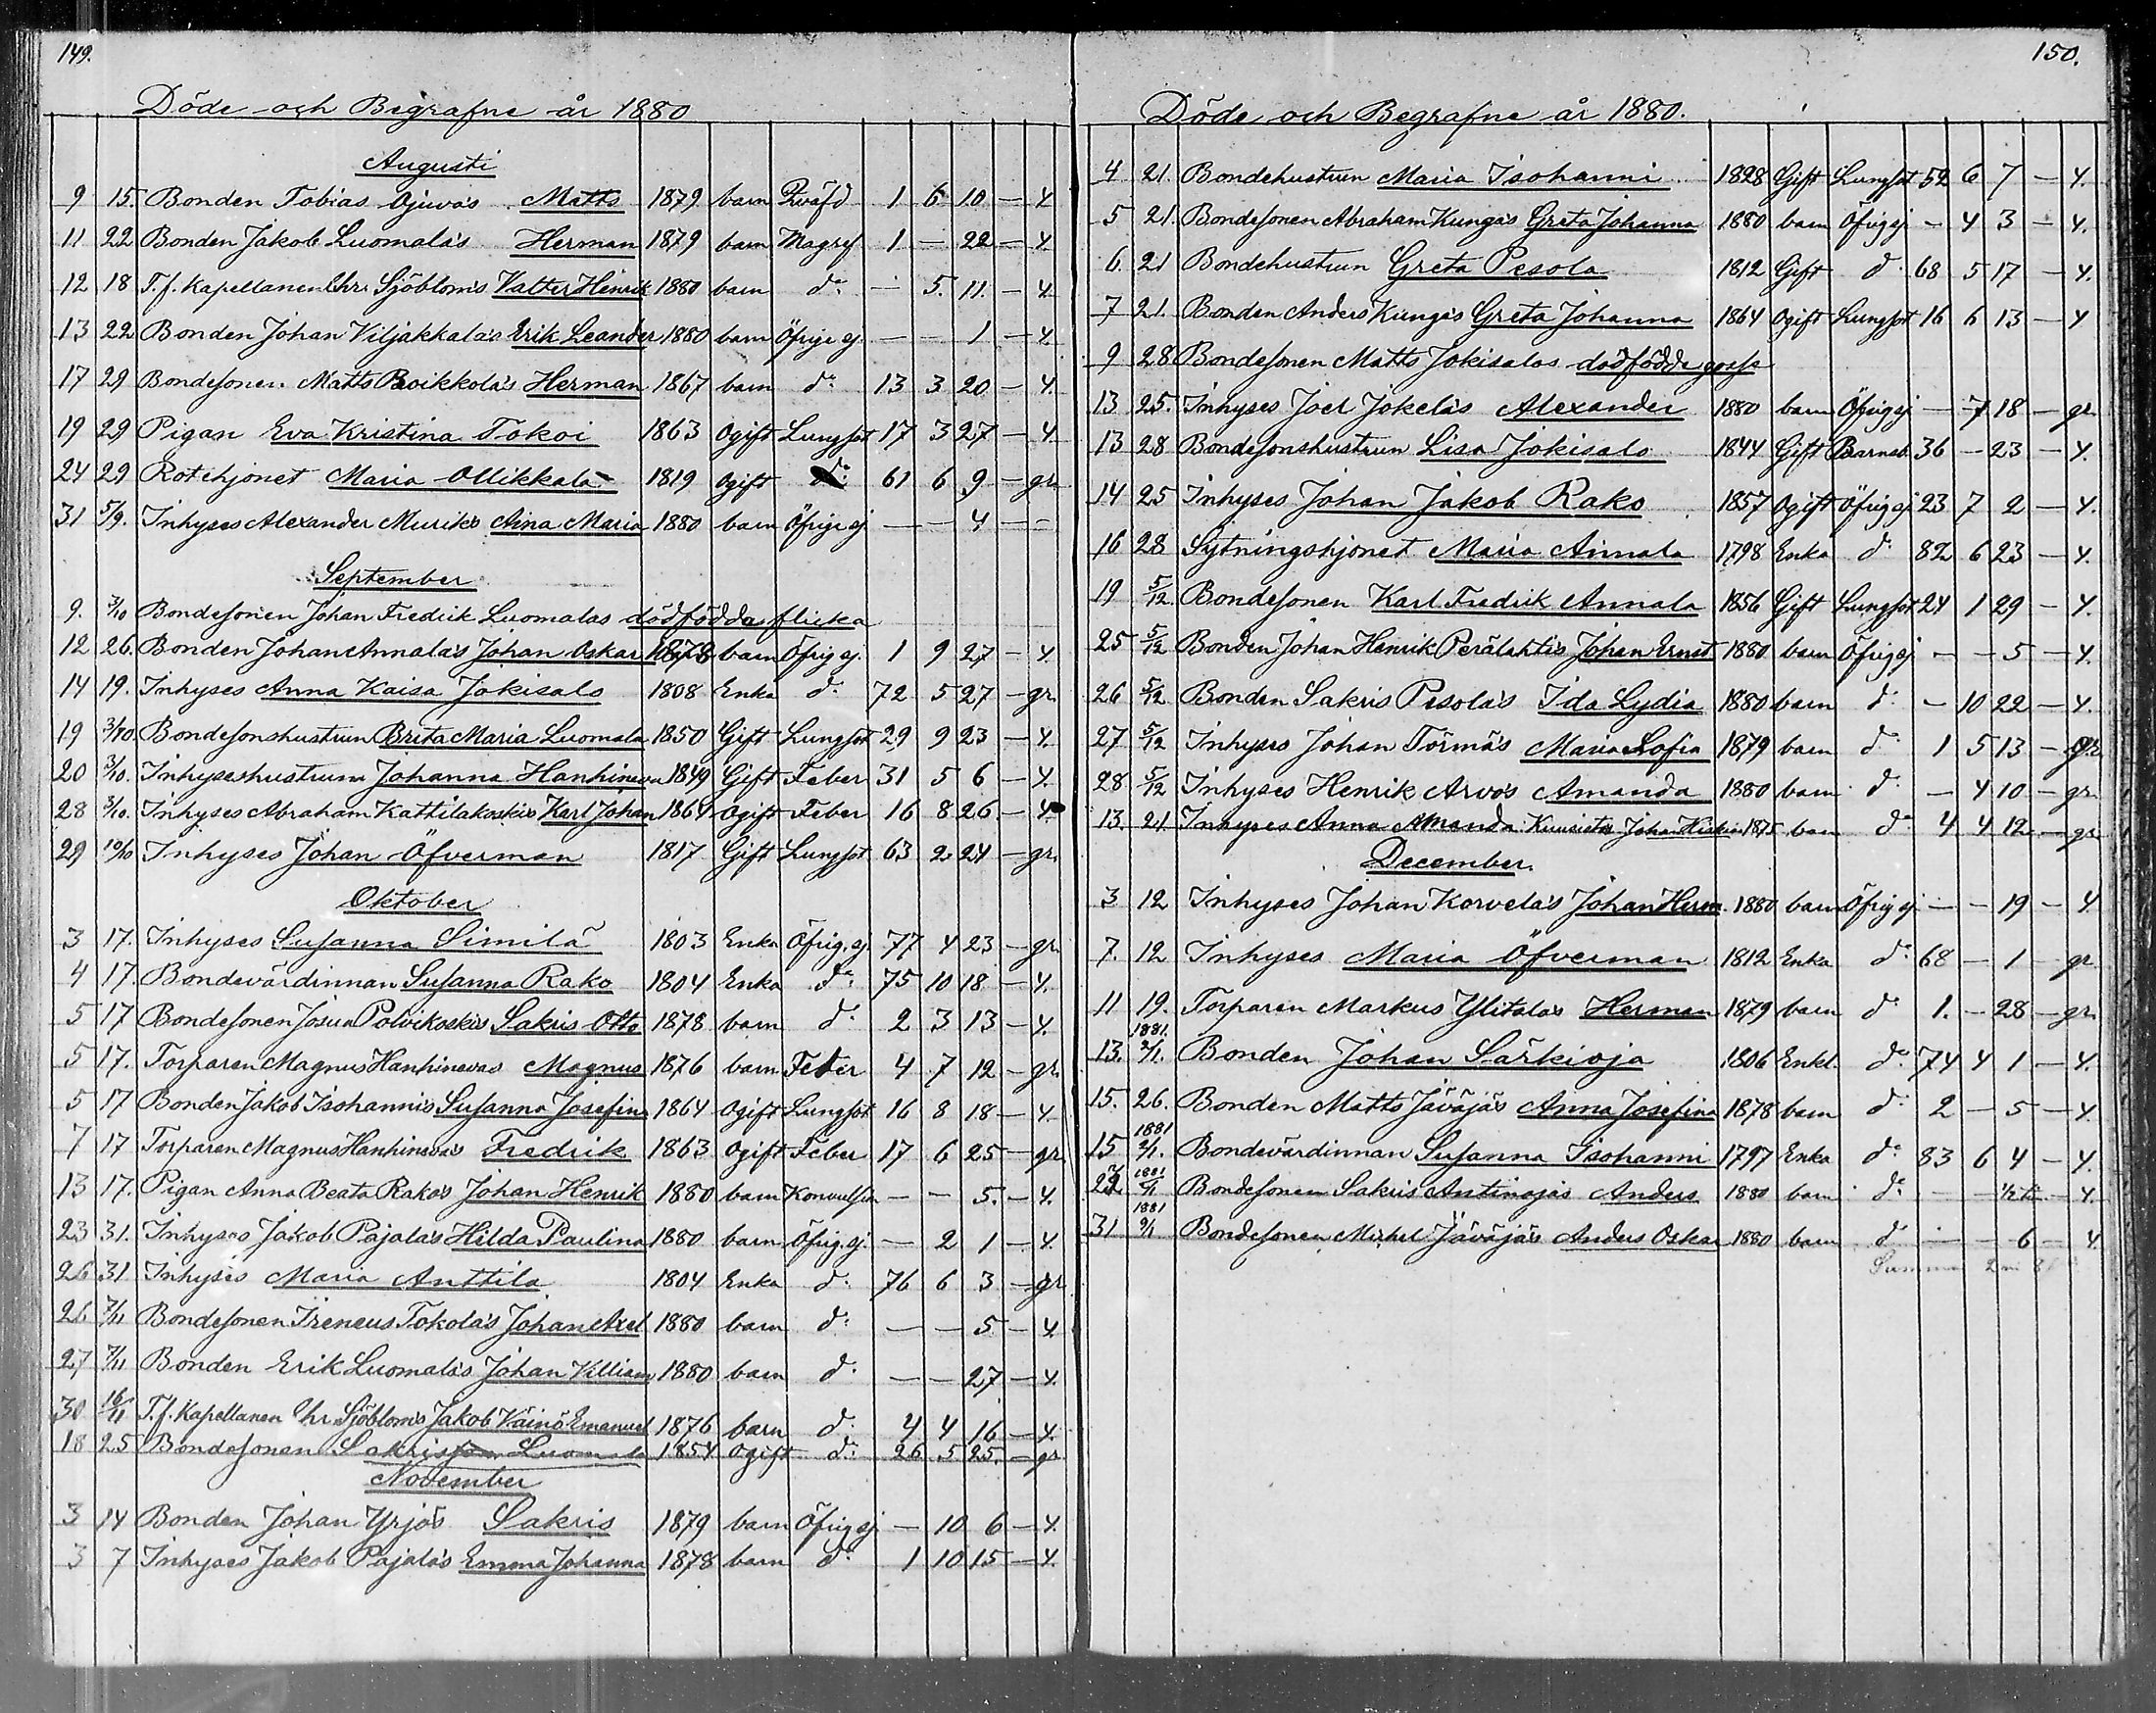 149.
Döde och Begrafne år 1880
Augusti
9 15. Bonden Tobias Ojuvas Matts 1879 barn Qväfd 1 6 10 — 4
11 22 Bonden Jakob Luomala's Herman 1879 barn Magsj 1 — 22 — 4
12 18 T.f. Kapellanen Chr. Sjöbloms Valter Henrik 1880 barn do — 5. 11. — 4.
13 22 Bonden Johan Viljakkala's Erik Leander 1880 barn Öfrige sj. — — 1 — 4.
17 29 Bondesonen Matts Roikkola's Herman 1867 barn do 13 3 20 — 4.
19 29 Pigan Eva Kristina Tokoi 1863 Ogift Lungsot 17 3 27 — 4.
24 29 Rotehjonet Maria Ollikkala 1819 Ogift do: 61 6 9 — gr
31 5/9. Inhyses Alexander Muriks Aina Maria 1880 barn Öfrige sj — — 4 — —
September
9. 3/10 Bondesonen Johan Fredrik Luomalas dödfödda flicka
12 26. Bonden Johan Annala's Johan Oskar 1878 barn Öfrig sj. 1 9 27 — 4.
14 19. Inhyses Anna Kaisa Jokisalo 1808 Enka do: 72 5 27 — gr.
19 3/10. Bondesonshustrun Brita Maria Luomala 1850 Gift Lungsot 29 9 23 — 4.
20 3/10. Inhyseshustrun Johanna Hanhineva 1849 Gift Feber 31 5 6 — 4.
28 3/10. Inhyses Abraham Kattilakoskis Karl Johan 1864 Ogift Feber 16 8 26 — 4
29 10/10 Inhyses Johan Öfverman 1817 Gift Lungsot 63 2 24 — gr.
Oktober
3 17. Inhyses Susanna Similä 1803 Enka Öfrig. sj. 77 4 23 — gr.
4 17. Bondevärdinnan Susanna Rako 1804 Enka do: 75 10 18 — 4.
5 17 Bondesonen Josua Polvikoskis Sakris Otto 1878 barn do: 2 3 13 — 4.
5 17. Torparen Magnus Hanhinevas Magnus 1876 barn Feber 4 7 12 — gr.
5 17 Bonden Jakob Isohannis Susanna Josefina 1864 Ogift Lungsot 16 8 18 — 4.
7 17 Torparen Magnus Hanhineva's Fredrik 1863 Ogift Feber 17 6 25 — gr
13 17. Pigan Anna Beata Rako's Johan Henrik 1880 barn Konvulsion — — 5. — 4.
23 31. Inhyses Jakob Pajala's Hilda Paulina 1880 barn Öfrig. sj. — 2 1 — 4.
26 31 Inhyses Maria Anttila 1804 Enka do: 76 6 3 — gr
26 7/11 Bondesonen Ireneus Tokola's Johan Axel 1880 barn do: — — 5 — 4.
27 7/11 Bonden Erik Luomala's Johan Villiam 1880 barn do: — — 27 — 4.
30 16/11 T.f. Kapellanen Chr. Sjöbloms Jakob Väinö Emanuel 1876 barn do: 4 4 16 — 4.
18 25 Bondesonen Sakris Luomala 1854 Ogift do: 26 5 25. — gr
November
3 14 Bonden Johan Yrjö's Sakris 1879 barn Öfrig sj — 10 6 — 4.
3 7 Inhyses Jakob Pajala's Emma Johanna 1878 barn do: 1 10 15 — 4.
150.
Döde och Begrafne år 1880.
4 21. Bondehustrun Maria Isohanni 1828 Gift Lungsot 52 6 7 — 4.
5 21. Bondesonen Abraham Kungas Greta Johanna 1880 barn Öfrig sj — 4 3 — 4.
6. 21 Bondehustrun Greta Pesola 1812 Gift do 68 5 17 — 4.
7 21. Bonden Anders Kungas Greta Johanna 1864 Ogift Lungsot 16 6 13 — 4
9 28 Bondesonen Matts Jokisalos dödfödde gosse
13 25. Inhyses Joel Jokela's Alexander 1880 barn Öfrig sj — 7 18 — gr
13 28 Bondesonshustrun Lisa Jokisalo 1844 Gift Barnsb. 36 — 23 — 4.
14 25 Inhyses Johan Jakob Rako 1857 Ogift Öfrig sj 23 7 2 — 4.
16 28 Sytningshjonet Maria Annala 1798 Enka do 82 6 23 — 4.
19 5/12. Bondesonen Karl Fredrik Annala 1856 Gift Lungsot 24 1 29 — 4.
25 5/12 Bonden Johan Henrik Perälahtis Johan Ernst 1880 barn Öfrig sj — — 5 — 4.
26 5/12 Bonden Sakris Pesola's Ida Lydia 1880 barn do: — 10 22 — 4.
27 5/12 Inhyses Johan Törmä's Maria Sofia 1879 barn do 1 5 13 — gr
28 5/12 Inhyses Henrik Arvo's Amanda 1880 barn do — 4 10 — gr
13. 21 Inhyses Anna Amanda Kuusistos Johan Hiskia 1875 barn do 4 4 12 — gr
December.
3 12 Inhyses Johan Korvela's Johan Herm. 1880 barn Öfrig sj — — 19 — 4.
7. 12 Inhyses Maria Öfverman 1812 Enka do: 68 — 1 — gr
11 19. Torparen Markus Ylitalo's Herman 1879 barn do 1. — 28 — gr.
13. 1881. 2/1. Bonden Johan Särkioja 1806 Enkl. do: 74 4 1 — 4.
15. 26. Bonden Matts Jäväjä's Anna Josefina 1878 barn do: 2 — 5 — 4.
15 1881 2/1. Bondevärdinnan Susanna Isohanni 1797 Enka do: 83 6 4 — 4.
22 1881 /1 Bondesonen Sakris Antinojas Anders 1880 barn do: — — 1/2 — 4.
31 1881 9/1 Bondesonen Mickel Jäväjä's Anders Oskar 1880 barn do — — 6 — 4
Summa